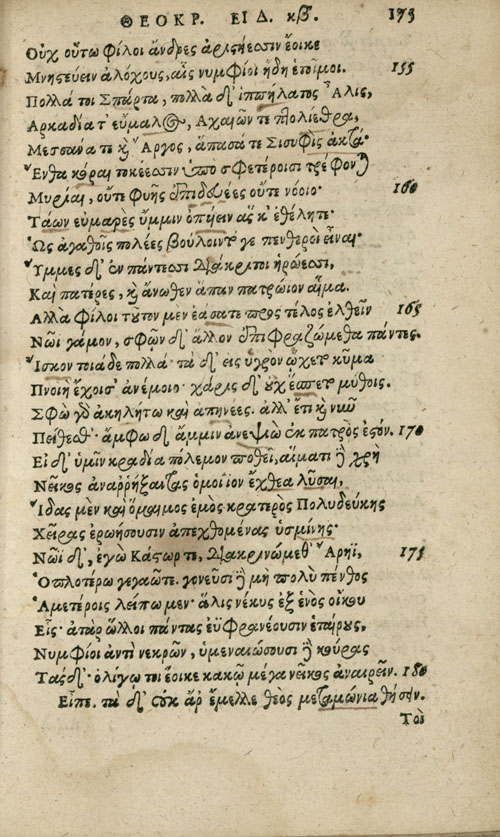 ΘΕΟΚΡ. ΕΙΔ. κβ. 173
Οὐχ οὕτω φίλοι ἄνδρες ἀριστήεσσιν ἔοικε
Μνηστεύειν ἀλόχους, αἷς νυμφίοι ἤδη ἑτοῖμοι. 155
Πολλά τοι Σπάρτα, πολλὰ δ' ἱππήλατος Ἆλις,
Αρκαδία τ' εὔμαλος, Αχαιῶν τε πτολίεθρα,
Μεσσάνα τε καὶ Ἄργος, ἅπασά τε Σισυφὶς ἀκτά·
Ἔνθα κόραι τοκέεσσιν ὑπὸ σφετέροισι τρέφονται
Μυρίαι, οὔτε φυῆς ἐπιδευέες οὔτε νόοιο· 160
Τάων εὐμαρὲς ὔμμιν ὀπύιειν ἅς κ' ἐθέλητε·
Ὡς ἀγαθοῖς πολέες βούλοιντό γε πενθεροὶ εἶναι·
Υ̓́μμες δ' ἐν πάντεσσι διάκριτοι ἡρώεσσι,
Καὶ πατέρες, καὶ ἄνωθεν ἅπαν πατρώιον αἷμα.
Αλλὰ φίλοι τοῦτον μὲν ἐάσατε πρὸς τέλος ἐλθεῖν 165
Νῶϊ γάμον, σφῶν δ' ἄλλον ἐπιφραζώμεθα πάντες.
Ἴσκον τοιάδε πολλά· τὰ δ' εἰς ὑγρὸν ᾤχετο κῦμα
Πνοιὴ ἔχοισ' ἀνέμοιο· χάρις δ' οὐχ ἕσπετο μύθοις.
Σφὼ γὰρ ἀκηλήτω καὶ ἀπηνέες. ἀλλ' ἔτι καὶ νῦν
Πείθεσθ'· ἄμφω δ' ἄμμιν ἀνεψιὼ ἐκ πατρὸς ἐστόν. 170
Εἰ δ' ὑμῖν κραδία πόλεμον ποθεῖ, αἵματι δὲ χρὴ
Νεῖκος ἀναρρήξαντας ὁμοίϊον ἔχθεα λῦσαι,
Ἴδας μὲν καὶ ὅμαιμος ἐμὸς κρατερὸς Πολυδεύκης
Χεῖρας ἐρωήσουσιν ἀπεχθομένας ὑσμίνης·
Νῶϊ δ', ἐγὼ Κάστωρ τε, διακρινώμεθ' Ἄρηϊ, 175
Ὁπλοτέρω γεγαῶτε. γονεῦσι δὲ μὴ πολὺ πένθος
Αμετέροις λείπωμεν· ἅλις νέκυς ἐξ ἑνὸς οἴκου
Εἷς· ἀτὰρ ὧλλοι πάντας ἐϋφρανέουσιν ἑταίρους,
Νυμφίοι ἀντὶ νεκρῶν, ὑμεναιώσουσι δὲ κούρας
Τάσδ'· ὀλίγῳ τοι ἔοικε κακῷ μέγα νεῖκος ἀναιρεῖν. 180
Εἶπε. τὰ δ' οὐκ ἄρ' ἔμελλε θεὸς μεταμώνια θήσειν.
Τοὶ